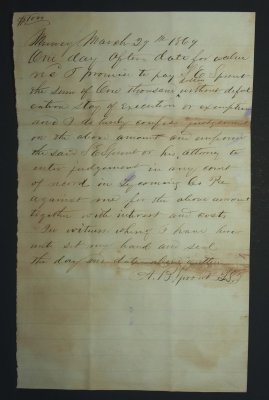 $1000
Muncy March 29th 1869
One day after date for value
rec'd I promise to pay E Sprout
the sum of One thousand without defal
cation Stay of Execution or exemption
and I do hereby confess judgement
on the above amount and empower
the said E Sprout or his attorney to
enter judgement in any court
of record in Lycoming Co Pa
against me for the above amount
together with interest and costs
In witness whereof I have here
unto set my hand and seal
the day and date above written
A. B. Sprout LS